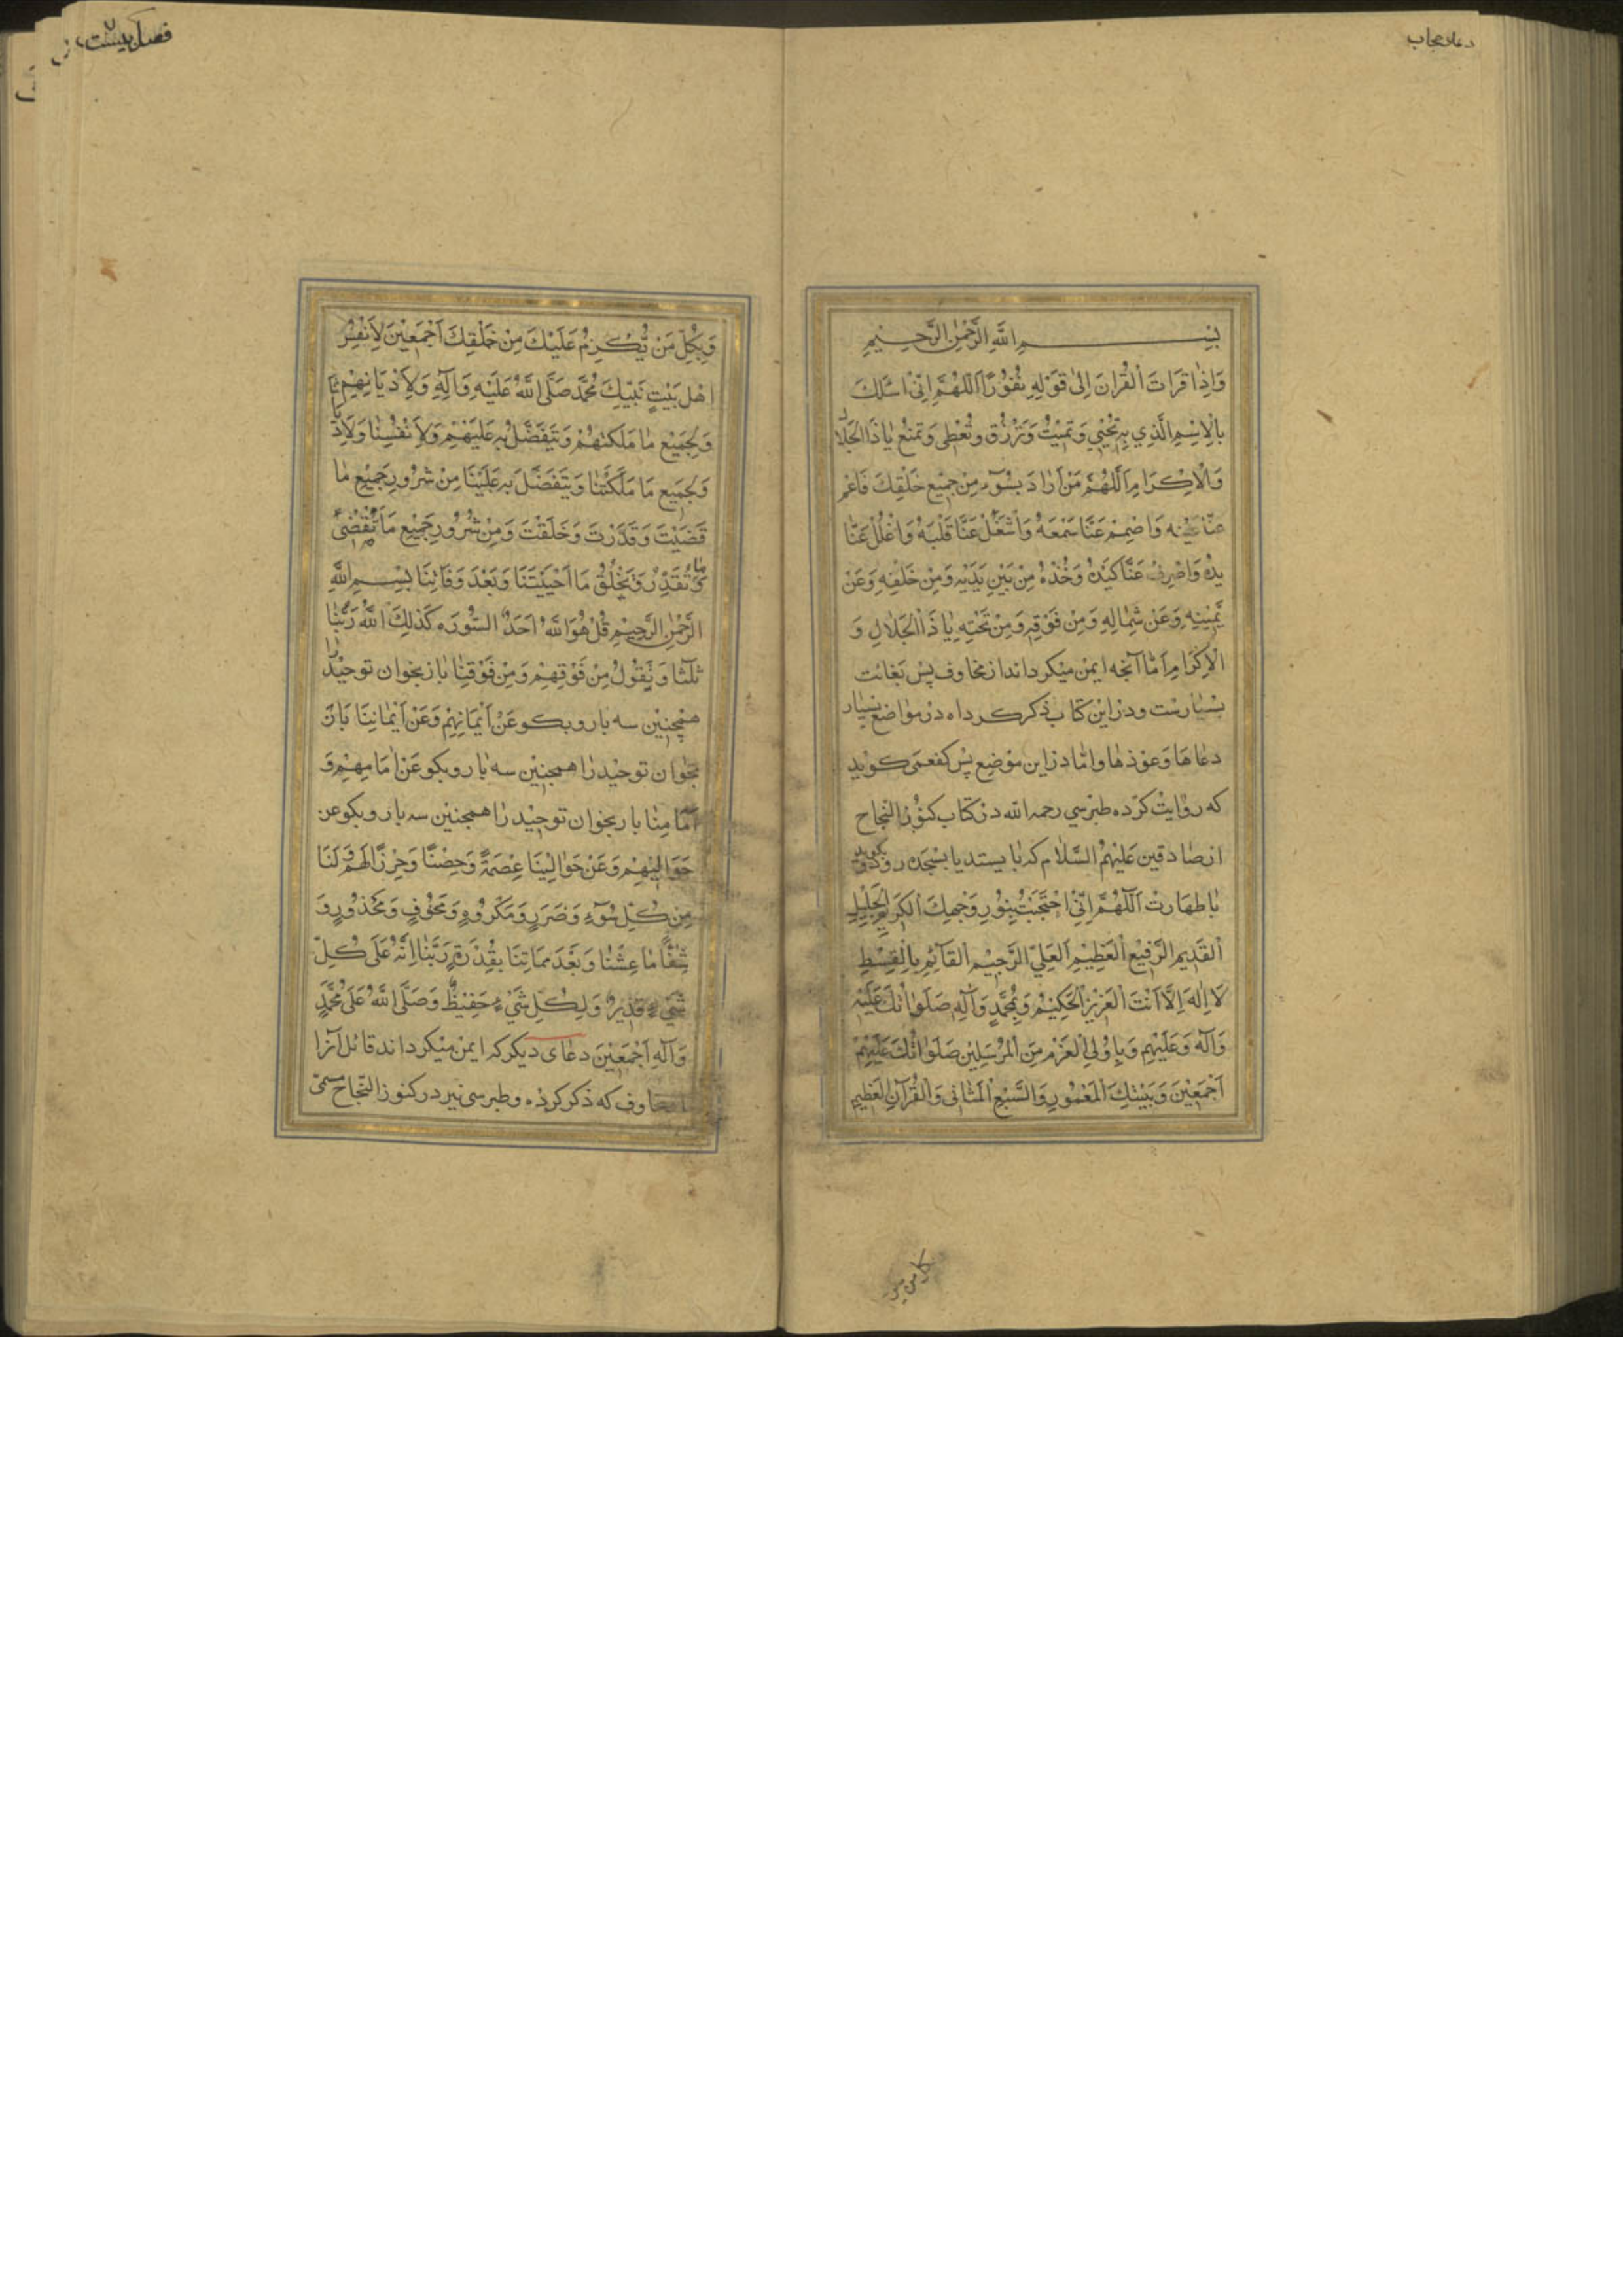 دعاء حجاب
بِسْمِ اللَّهِ الرَّحْمٰنِ الرَّحِيمِ
وَاِذٰا قَرَاتَ الْقُرانَ اِلىٰ قَوْلِهِ نُفُوْرًا اَللّٰهُمَّ اِنّىْ اَسْئَلُكَ
بِالْاِسْمِ الَّذِي بِهِ تُحْيِي وَتُمِيْتُ وَتَرْزُق وَتُعْطِى وَتَمْنَعُ يٰا ذَا الْجَلٰالِ
وَالْاِكْرَامِ اَللّٰهُمَّ مَنْ اَرٰادَ بِسُوۤءٍ مِنْ جَمِيْعِ خَلْقِكَ فَاعْمِ
عَنّٰا عَيْنَه وَاصْمِمْ عَنَّا سَمْعَهُ وَاشْغَلْ عَنَّا قَلْبَهُ وَاغْلُلْ عَنّٰا
يَدَهُ وَاصْرِفْ عَنَّا كَيْدَهُ وَخُذْهُ مِنْ بَيْنِ يَدَيْهِ وَمِنْ خَلْفِهِ وَعَنْ
يَمِيْنِهِ وَعَنْ شِمٰالِهِ وَمِنْ فَوْقِهِ وَمِنْ تَحْتِهِ يٰا ذَا الْجَلٰالِ وَ
الْاِكْرَامِ اَمّٰا آنچه ايمن ميكرداند از مخاوف پس بغائت
بسيارست ودر اين كتاب ذكر كرداه در مواضع بسيار
دعاها وعوذها وامّا در اين موضع پس كفعمى كويد
كه روايت كرده طبرسي رحمه الله در كتاب كنوز النجاح
از صادقين عَلَيْهِمُ السَّلٰام كه بايستد يا بسجده رود وبكويد
با طهارت اَللّٰهُمَّ اِنّىْ احْتَجَبْتُ بِنُوْرِ وَجْهِكَ الْكَرِيْمِ الْجَلِيْلِ
الْقَدِيْمِ الرَّفِيْعِ الْعَظِيْمِ الْعَلِيِّ الرَّحِيْمِ الْقَآئِمِ بِالْقِسْطِ
لَا اِلٰهَ اِلَّا اَنْتَ الْعَزِيْزُ الْحَكِيْمُ وَبِمُحَمَّدٍ وَآلِهِ صَلَوٰاتُكَ عَلَيْهِ
وَآلِهِ وَعَلَيْهِمْ وَبِاُوْلِي الْعَزْمِ مِنَ الْمُرْسَلِيْنَ صَلَوٰاتُكَ عَلَيْهِمْ
اَجْمَعِيْنَ وَبَيْتِكَ الْمَعْمُوْرِ وَالسَّبْعِ الْمَثٰانى وَالْقُرْآنِ الْعَظِيْمِ
فصل بيست
وَبِكُلِّ مَنْ يُكْرَمُ عَلَيْكَ مِنْ خَلْقِكَ اَجْمَعِيْنَ لِاَنْفُسِ
اهْلِ بَيْتِ نَبِيّكَ مُحَمَّدٍ صَلَّى اللَّهُ عَلَيْهِ وَآلِهِ وَلِاَدْيَانِهِمْ
وَلِجَمِيْعِ مٰا مَلَكْتَهُمْ وَيَتَفَضَّلُ بِهِ عَلَيْهِمْ وَلِاَنْفُسِنٰا وَلِاَدْيٰانِنٰا
وَلِجَمِيعِ مَا مَلَّكْتَنٰا وَيَتَفَضَّلُ بِهِ عَلَيْنَا مِنْ شُرُورِ جَمِيْعِ مٰا
قَضَيْتَ وَقَدَّرْتَ وَخَلَقْتَ وَمِنْ شُرُورِ جَمِيْعِ مَا تَقْضِىْ
وَمٰا تُقَدِّرُ وَتَخْلُقُ مَا اَحْيَيْتَنَا وَبَعْدَ وَفَاتِنَا بِسْمِ اللَّهِ
الرَّحْمٰنِ الرَّحِيْمِ قُلْ هُوَ اللَّهُ اَحَدٌ السُّوْرَه كَذٰلِكَ اللَّهُ رَبُّنٰا
ثَلٰثًا وَيَقُوْلُ مِنْ فَوْقِهِمْ وَمِنْ فَوْقِنٰا باز بخوان توحيد را
همچنين سه بار وبكو عَنْ اَيْمَانِهِمْ وَعَنْ اَيْمٰانِنَا باز
بخوان توحيد را همچنين سه بار وبكو عَنْ اَمَامِهِمْ وَ
اَمَامِنٰا باز بخوان توحيد را همچنين سه بار وبكو عن
حَوَالَيْهِمْ وَعَنْ حَوٰالَيْنَا عِصْمَةً وَحِصْنًا وَحِرْزًا لَهُمْ وَلَنَا
مِنْ كُلِّ سُوۤءٍ وَضَرَرٍ وَمَكْرُوْهٍ وَمَخُوْفٍ وَمَحْذُوْرٍ وَ
مٰا عِشْنٰا وَبَعْدَ مَمَاتِنَا بِقُدْرَةِ رَبِّنٰا اِنَّهُ عَلَى كُلِّ
شَيْءٍ قَدِيْرٌ وَلِكُلِّ شَيْءٍ حَفِيْظٌ وَصَلَّى اللَّهُ عَلَى مُحَمَّدٍ
وَآلِهِ اَجْمَعِيْنَ دعاى ديكر كه ايمن ميكرداند قائل آنرا
مخاوف كه ذكر كرده وطبرسى نيز در كنوز النّجاح